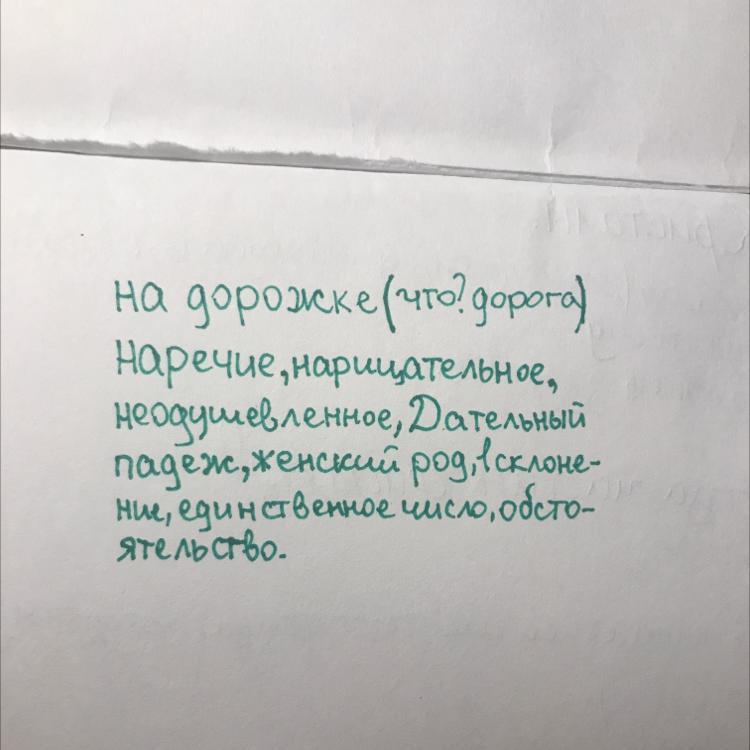 на дорожке (что? дорога)
Наречие, нарицательное,
неодушевленное, Дательный
падеж, женский род, 1 склоне-
ние, единственное число, обсто-
ятельство.